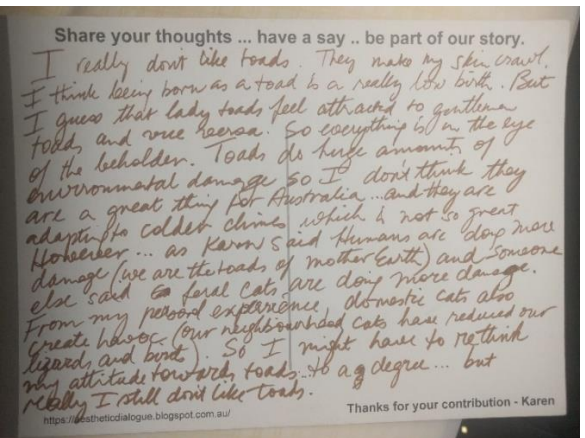 Share your thoughts ... have a say .. be part of our story.
I really don't like toads. They make my skin crawl.
I think being born as a toad is a really low birth. But
I guess that lady toads feel attracted to gentlemen
toads and vice versa. So everything is in the eye
of the beholder. Toads do huge amounts of
environmental damage so I don't think they
are a great thing for Australia ... and they are
adapting to colder climes which is not so great
However ... as Karen said Humans are doing more
damage (we are the toads of mother Earth) and someone
else said feral cats are doing more damage.
From my personal experience, domestic cats also
create havoc (our neighbourhood cats have reduced our
lizards and birds). So I might have to rethink
my attitude towards toads to a degree ... but
really I still don't like toads.
https://aestheticdialogue.blogspot.com.au/
Thanks for your contribution - Karen